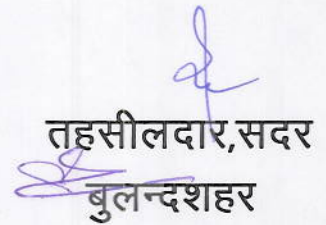 तहसीलदार,सदर
बुलन्दशहर